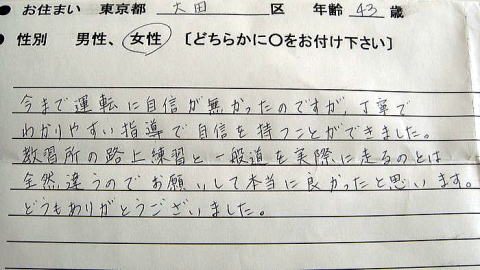 ● お住まい 東京都 大田 区 年齢 43 歳
● 性別 男性、女性 〔どちらかに○をお付け下さい〕
今まで運転に自信が無かったのですが、丁寧で
わかりやすい指導で自信を持つことができました。
教習所の路上練習と一般道を実際に走るのとは
全然違うのでお願いして本当に良かったと思います。
どうもありがとうございました。